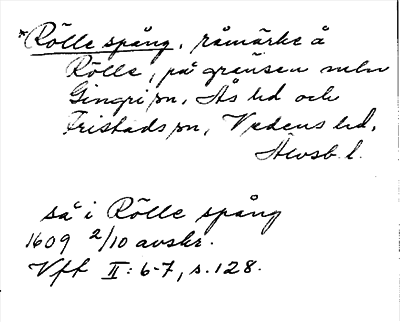 *Rölle spång, råmärke å
Rölle, på gränsen mellan
Gingri sn, Ås hd och
Fristads sn, Vedens hd,
Älvsb. l.
så i Rölle spång
1609 2/10 avskr.
Vff II: 6-7, s. 128.